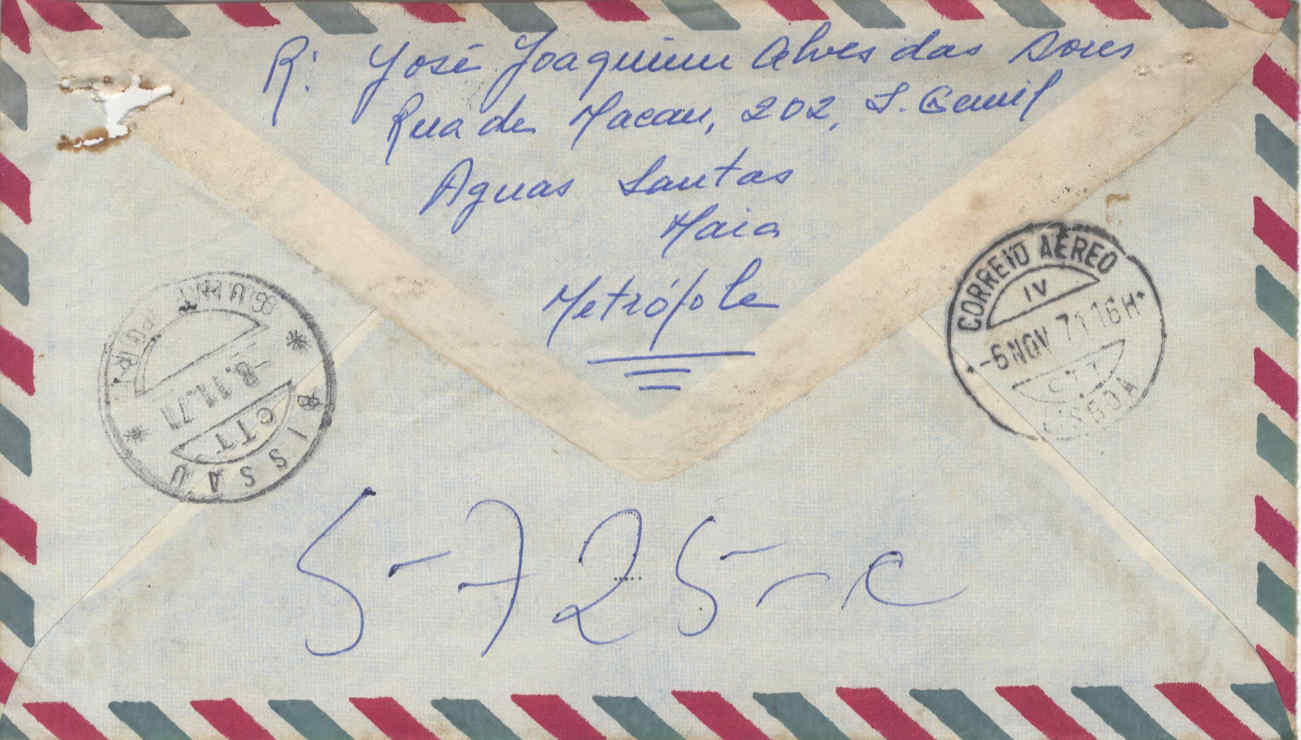 R: José Joaquim Alves das Dores
Rua de Macau, 202, S. Gemil
Aguas Santas
Maia
Metrópole
CORREIO AÉREO
IV
-6 NOV 71 16H
CTT
LISBOA
-8.11.71
CTT
BISSAU
5-725-c